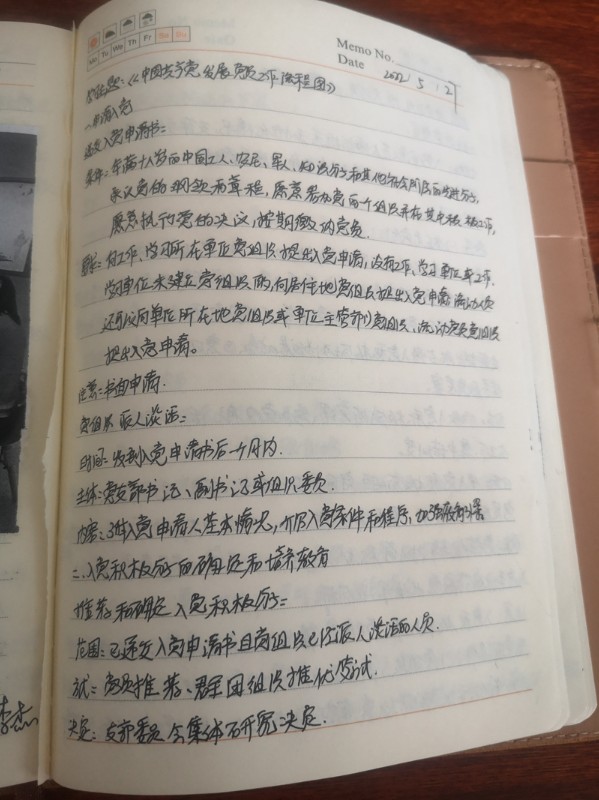 Mo Tu We Th Fr Sa Su
Memo No.
Date 2022 5 12
《中国共产党发展党员工作流程图》
一、申请入党
递交入党申请书:
要求:年满十八岁的中国工人、农民、军人、知识分子和其他社会阶层的先进分子,
承认党的纲领和章程,愿意参加党的一个组织并在其中积极工作,
愿意执行党的决议,按期缴纳党费.
向工作、学习所在单位党组织提出入党申请,没有工作、学习单位或工作.
学习单位未建立党组织的,向居住地党组织提出入党申请,流动人员
还可以向单位所在地党组织或单位主管部门党组织、流动党员党组织
提出入党申请。
注意:书面申请.
党组织派人谈话:
时间:收到入党申请书后一个月内.
主体:党支部书记、副书记或组织委员.
内容:了解入党申请人基本情况,介绍入党条件和程序,加强教育引导
二、入党积极分子的确定和培养教育
推荐和确定入党积极分子:
范围:已递交入党申请书且党组织已经派人谈话的人员.
方式:党员推荐、群团组织推优
决定:支部委员会集体研究决定.
李杰